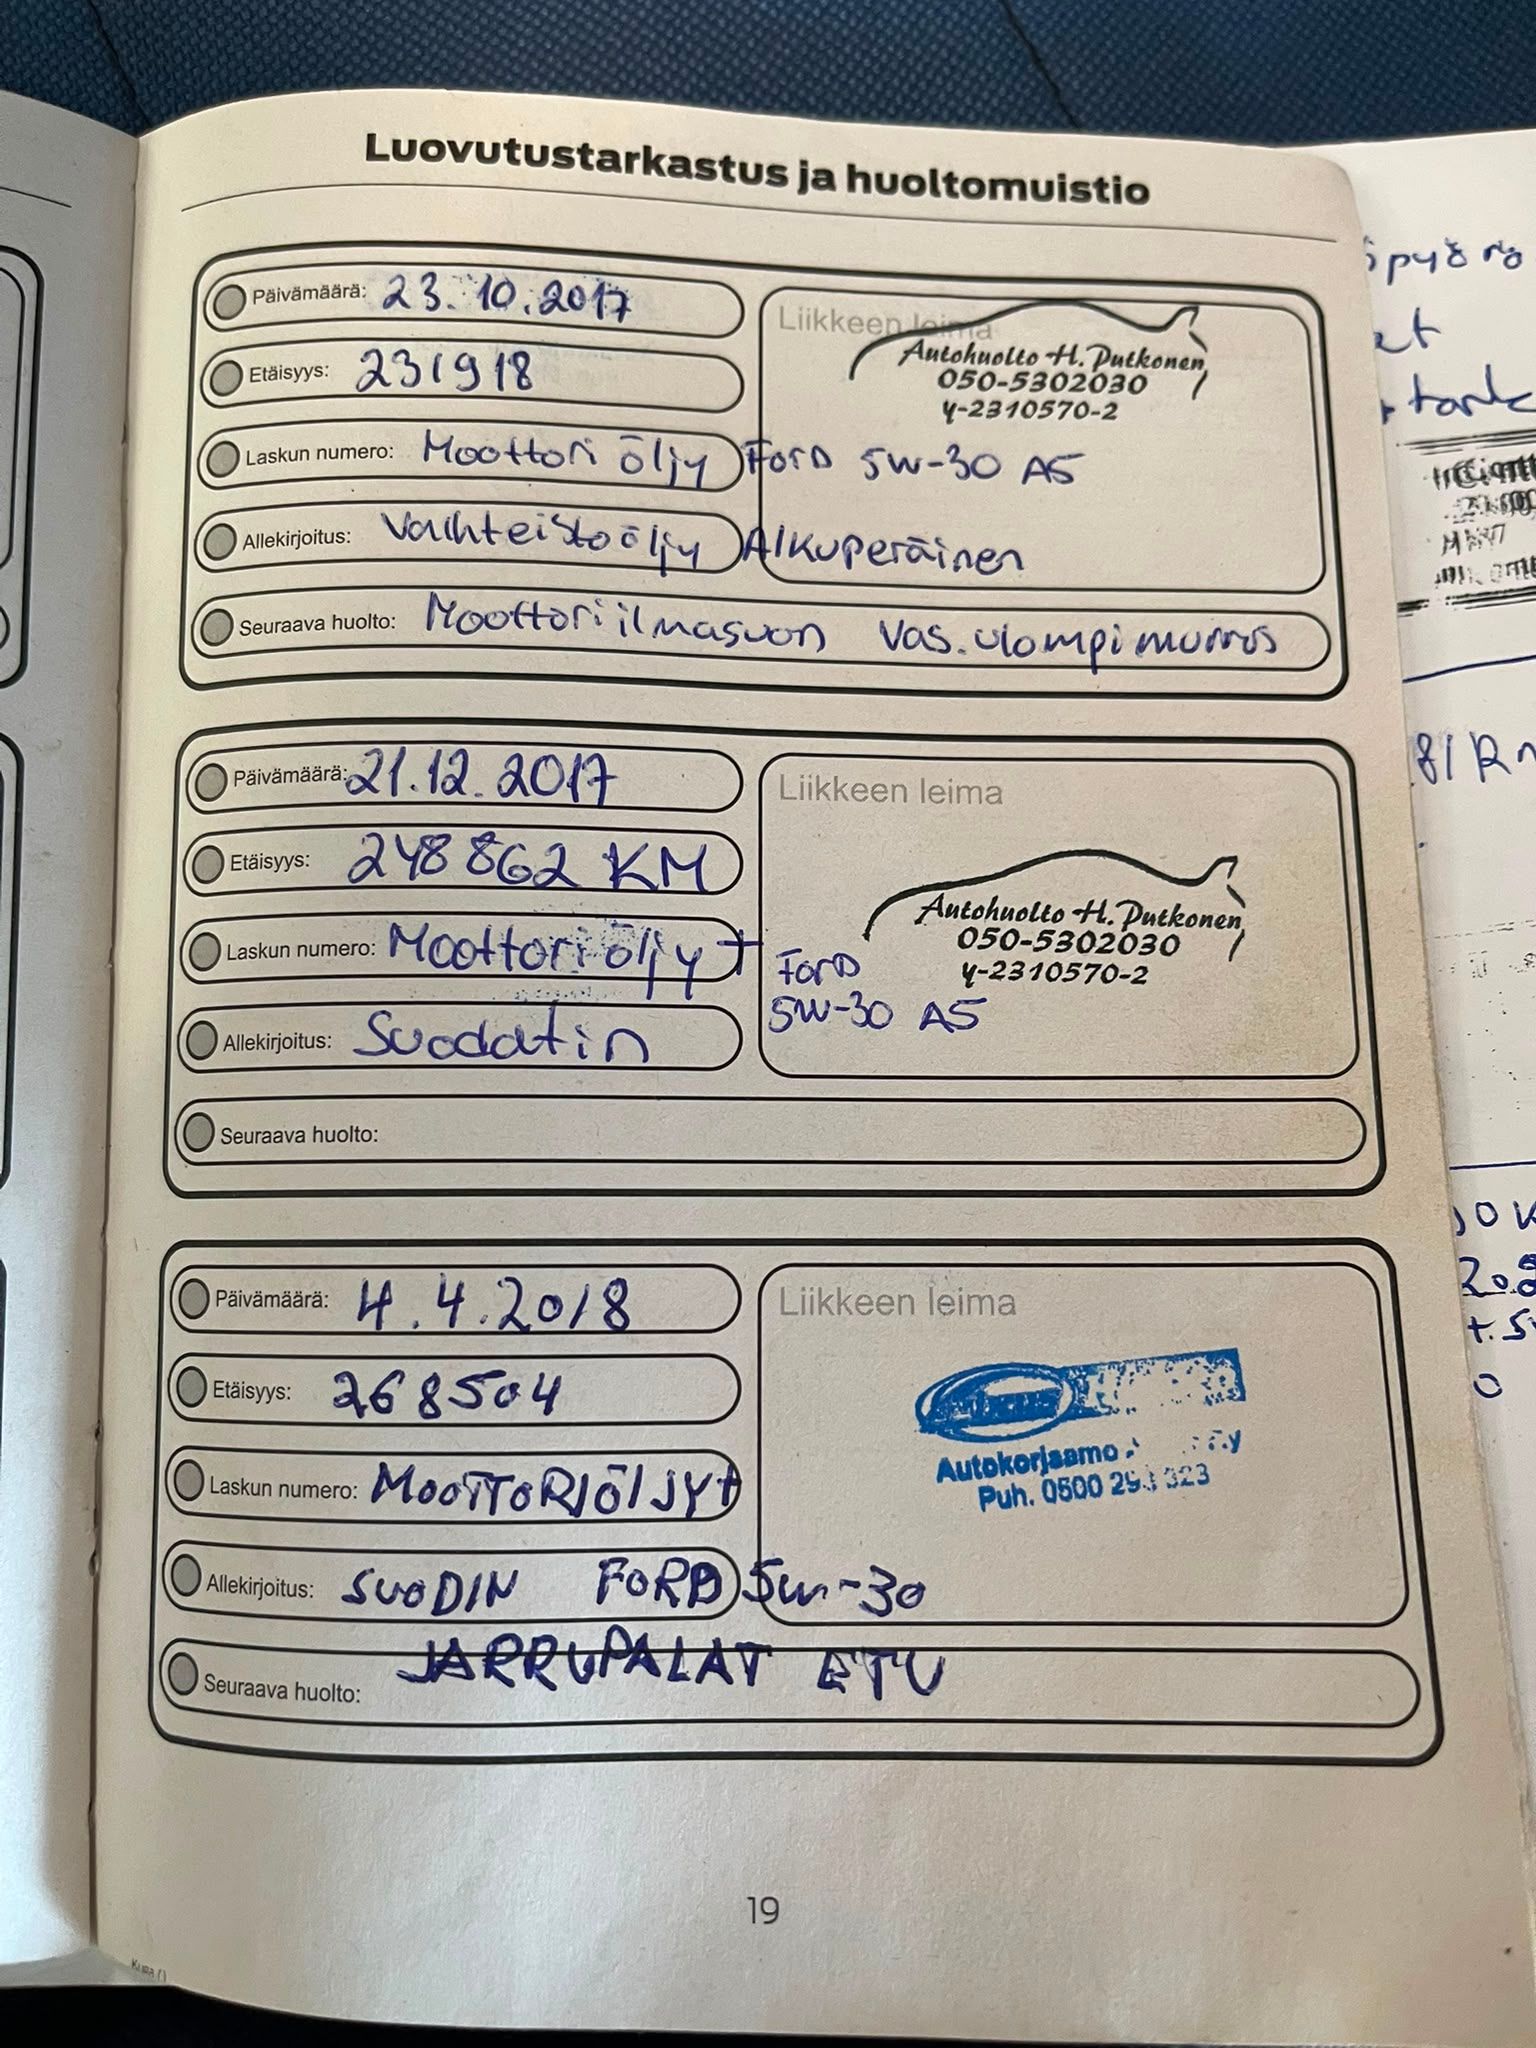 Luovutustarkastus ja huoltomuistio
Päivämäärä: 23.10.2017
Liikkeen leima
Autohuolto H. Putkonen
050-5302030
y-2310570-2
Etäisyys: 231918
Laskun numero: Moottori öljy Ford 5W-30 A5
Allekirjoitus: Vaihteistoöljy Alkuperäinen
Seuraava huolto: Moottori ilmasuon vas. ulompi murros
Päivämäärä: 21.12.2017
Liikkeen leima
Etäisyys: 248862 KM
Autohuolto H. Putkonen
050-5302030
y-2310570-2
Laskun numero: Moottori öljy +
Ford
5W-30 A5
Allekirjoitus: Suodatin
Seuraava huolto:
Päivämäärä: 4.4.2018
Liikkeen leima
Etäisyys: 268504
Autokorjaamo
Puh. 0500
Laskun numero: MOOTTORIÖLJY+
Allekirjoitus: SUODIN FORD 5W-30
Seuraava huolto: JARRUPALAT ETU
19
tark